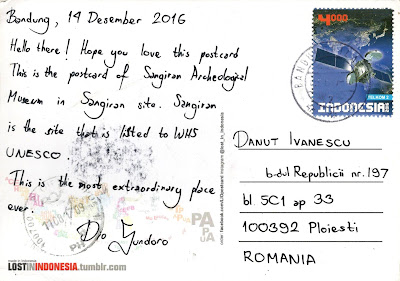 Bandung, 14 Desember 2016
Hello there! Hope you love this postcard
This is the postcard of Sangiran Archeological
Museum in Sangiran site. Sangiran
is the site that is listed to WHS
UNESCO.
This is the most extraordinary place
ever.
Dio Yundoro
LOSTININDONESIA.tumblr.com
PA
PUA
4000
TELKOM 3
INDONESIA
DANUT IVANESCU
b-dul Republicii nr. 197
bl. 5C1 ap 33
100392 Ploiesti
ROMANIA